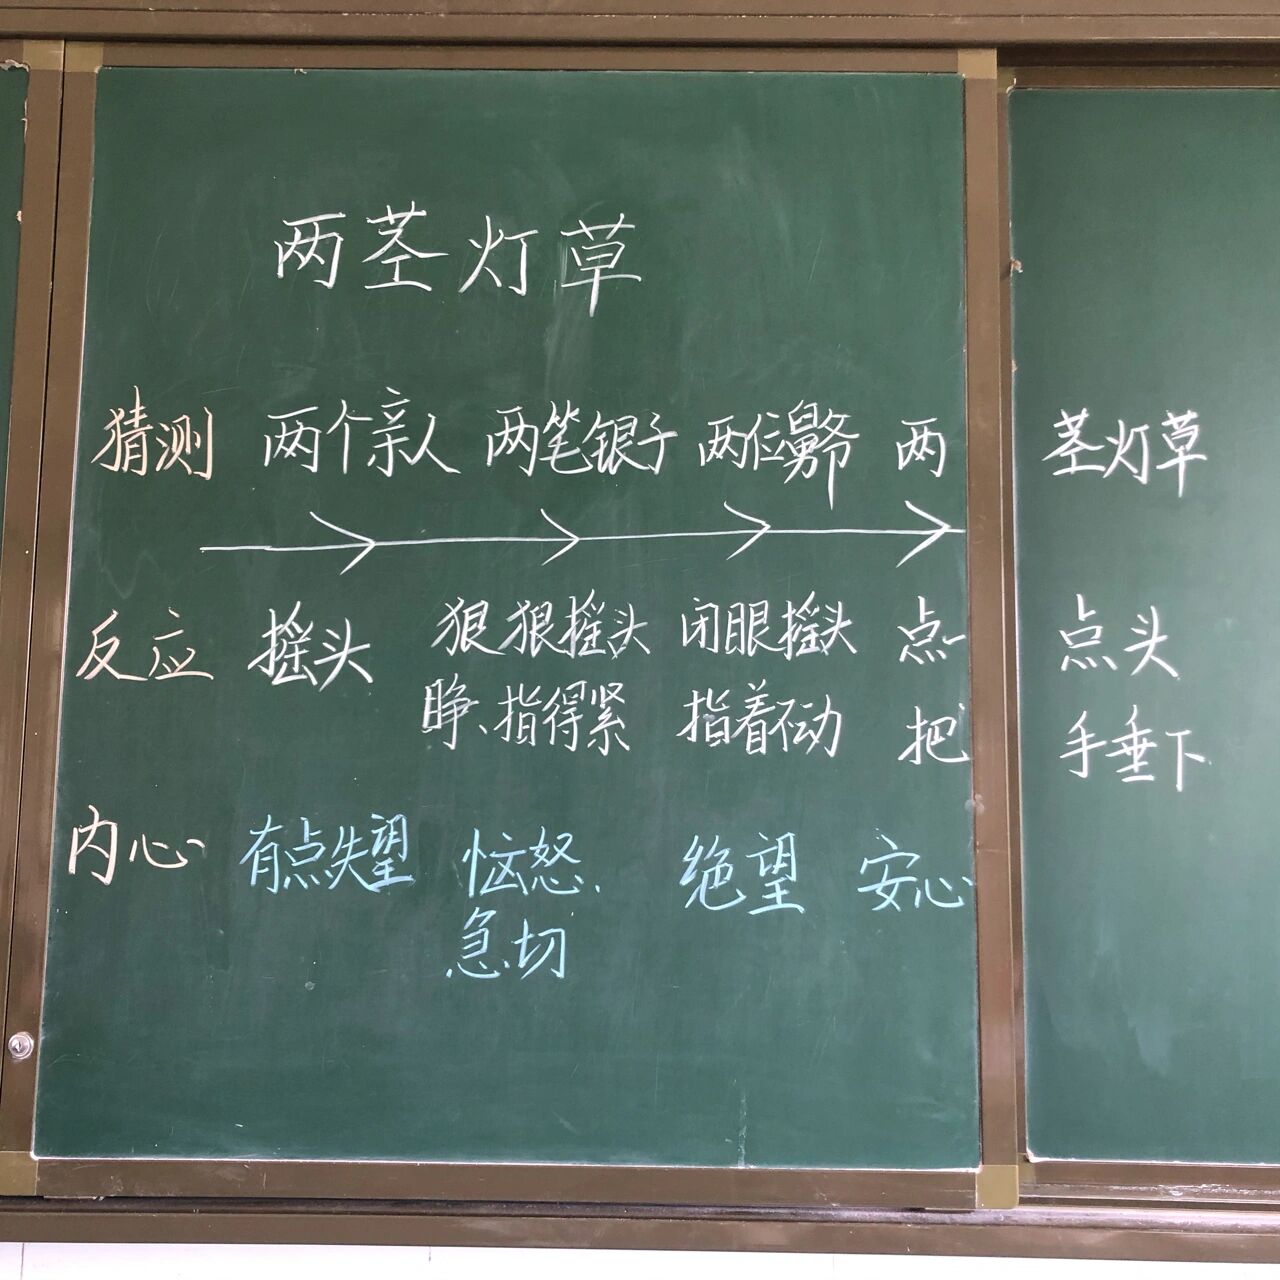 两茎灯草
猜测 两个亲人 两笔银子 两位舅爷 两茎灯草
反应 摇头 狠狠摇头 闭眼摇头 点一点头
睁、指得紧 指着不动 把手垂下
内心 有点失望 恼怒、 绝望 安心
急切